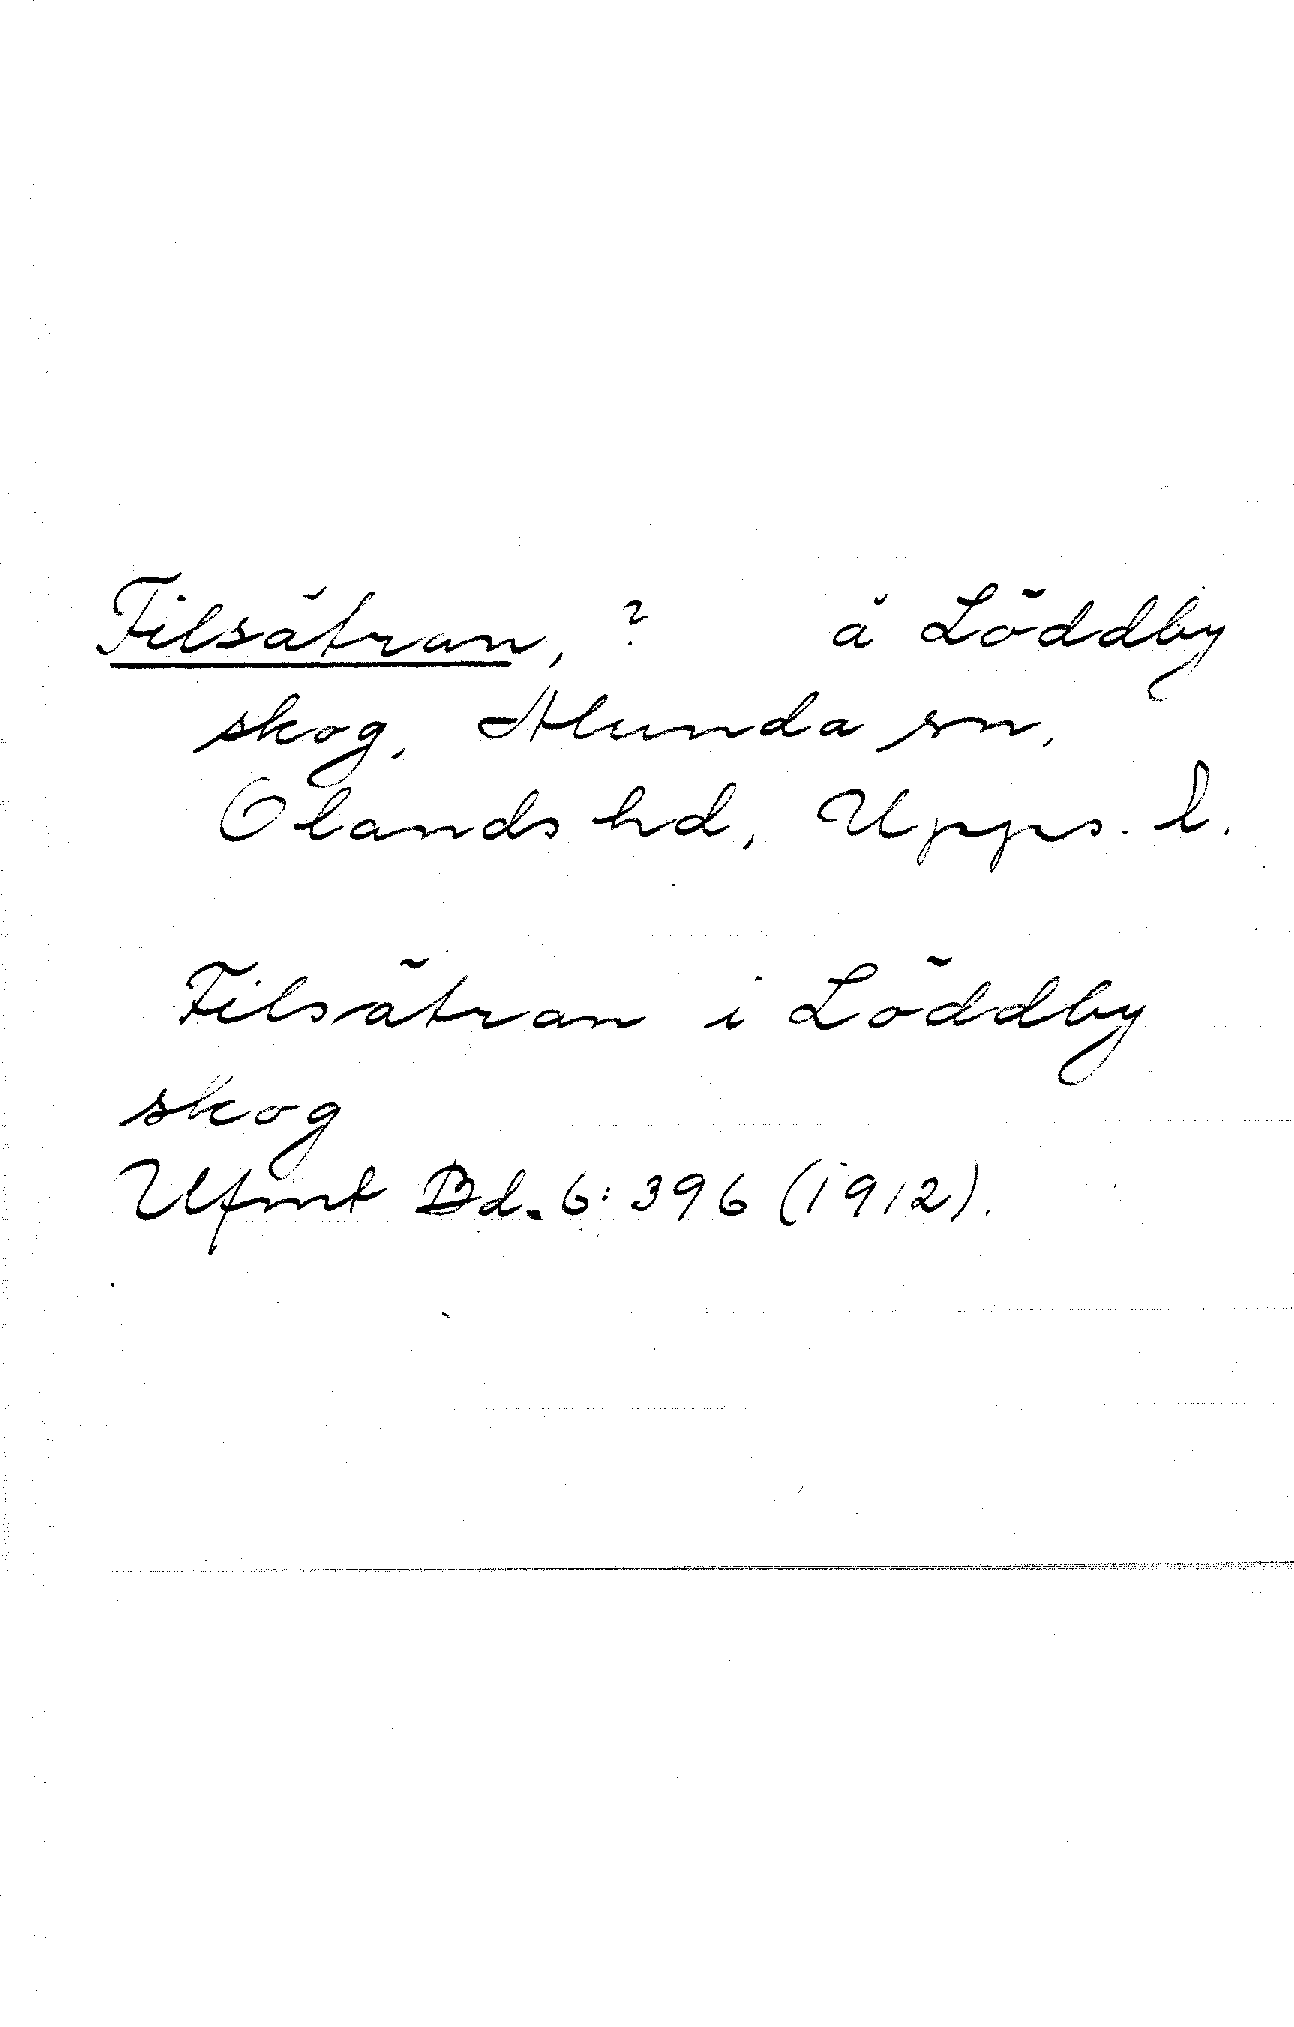 Filsätran, ? å Löddby
skog, Alunda sn,
Olands hd, Upps. l.
Filsätran i Löddby
skog
Ufmt Bd. 6: 396 (1912).